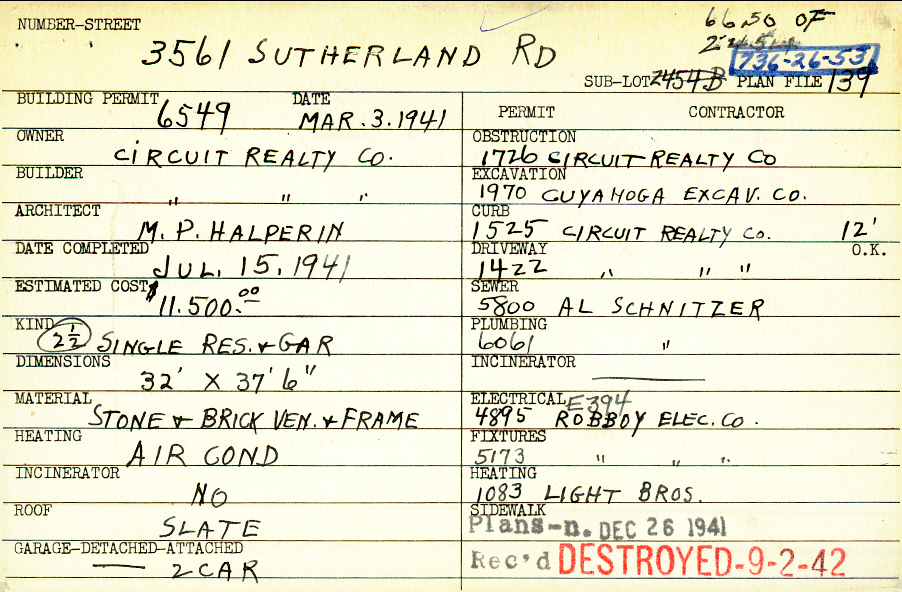 NUMBER-STREET
3561 SUTHERLAND RD
66.50 OF
736-26-53
SUB-LOT 2454 B PLAN FILE 139
BUILDING PERMIT 6549 DATE MAR. 3. 1941
OWNER CIRCUIT REALTY CO.
BUILDER " " "
ARCHITECT M. P. HALPERIN
DATE COMPLETED JUL. 15, 1941
ESTIMATED COST $11.500.00
KIND 2½ SINGLE RES. & GAR
DIMENSIONS 32' X 37' 6"
MATERIAL STONE & BRICK VEN. & FRAME
HEATING AIR COND
INCINERATOR NO
ROOF SLATE
GARAGE-DETACHED-ATTACHED — 2 CAR
PERMIT CONTRACTOR
OBSTRUCTION 1726 CIRCUIT REALTY CO
EXCAVATION 1970 CUYAHOGA EXCAV. CO.
CURB 1525 CIRCUIT REALTY CO. 12'
DRIVEWAY 1422 " " " O.K.
SEWER 5800 AL SCHNITZER
PLUMBING 6061 "
INCINERATOR —
ELECTRICAL E394
4895 ROBBOY ELEC. CO.
FIXTURES 5173 " " "
HEATING 1083 LIGHT BROS.
SIDEWALK
Plans-n. DEC 26 1941
Rec'd DESTROYED-9-2-42